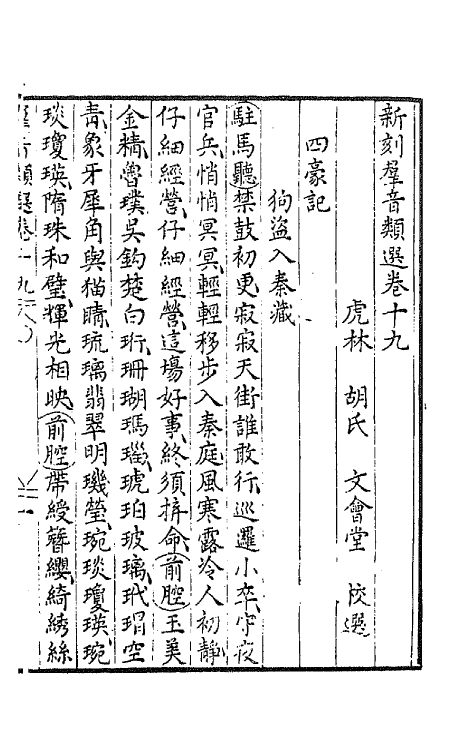 新刻羣音類選卷十九
虎林 胡氏 文會堂 校選
四豪記
狗盜入秦藏
駐馬聽禁鼓初更寂寂天街誰敢行巡邏小卒守夜
官兵悄悄冥冥輕輕移步入秦庭風寒露冷人初靜
仔細經營仔細經營這場好事終須拚命前腔玉美
金精魯璞吳鈎楚白珩珊瑚瑪瑙琥珀玻璃玳瑁空
青象牙犀角與猫睛琉璃翡翠明璣瑩琬琰瓊瑛琬
琰瓊瑛隋珠和璧輝光相映前腔帶綬簪纓綺綉絲
羣音類選卷十九
一